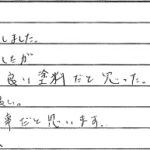 しました。
したが
良い塗料だと思った。
い。
事だと思います。